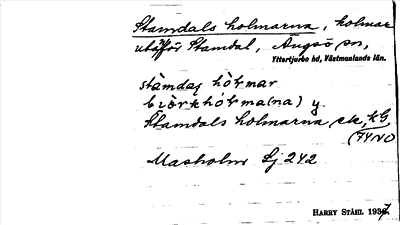 Stamdals holmarna, holmar
utanför Stamdal, Ängsö sn,
Yttertjurbo hd, Västmanlands län.
stàmdaʒ hòɫmar
biörkhóɫma(na) y.
Stamdals holmarna ek, kG
(74NO
Masholm Sj 242
HARRY STÅHL 1937